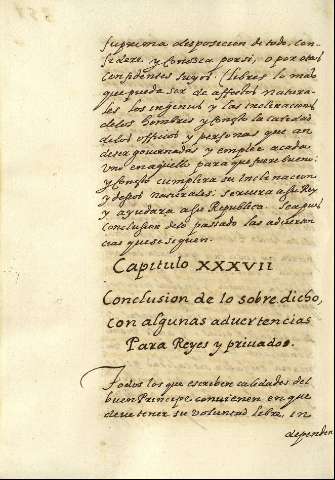 suprema disposicion de todo, con
sidere, y conosca por si, o por otras
confidentes suyos (libres lo mas
que pueda ser de affectos natura
les los ingenios y las inclinaciones
de los hombres y conoslo la calidad
de los officios y personas que an
de ser gouernadas y emplee a cada
vno en aquello para que fuere bueno:
y conoslo cumplira su inclinacion
y deseos naturales: seruira a su Rey
y ayudara a su Republica. Sea pues
conclusion de lo passado las aduerten
cias que se siguen.
Capitulo XXXVII
Conclusion de lo sobre dicho,
con algunas advertencias
Para Reyes y privados.
Todos los que escriben calidades del
buen Principe convienen en que
deve tener su voluntad libre, in
dependen